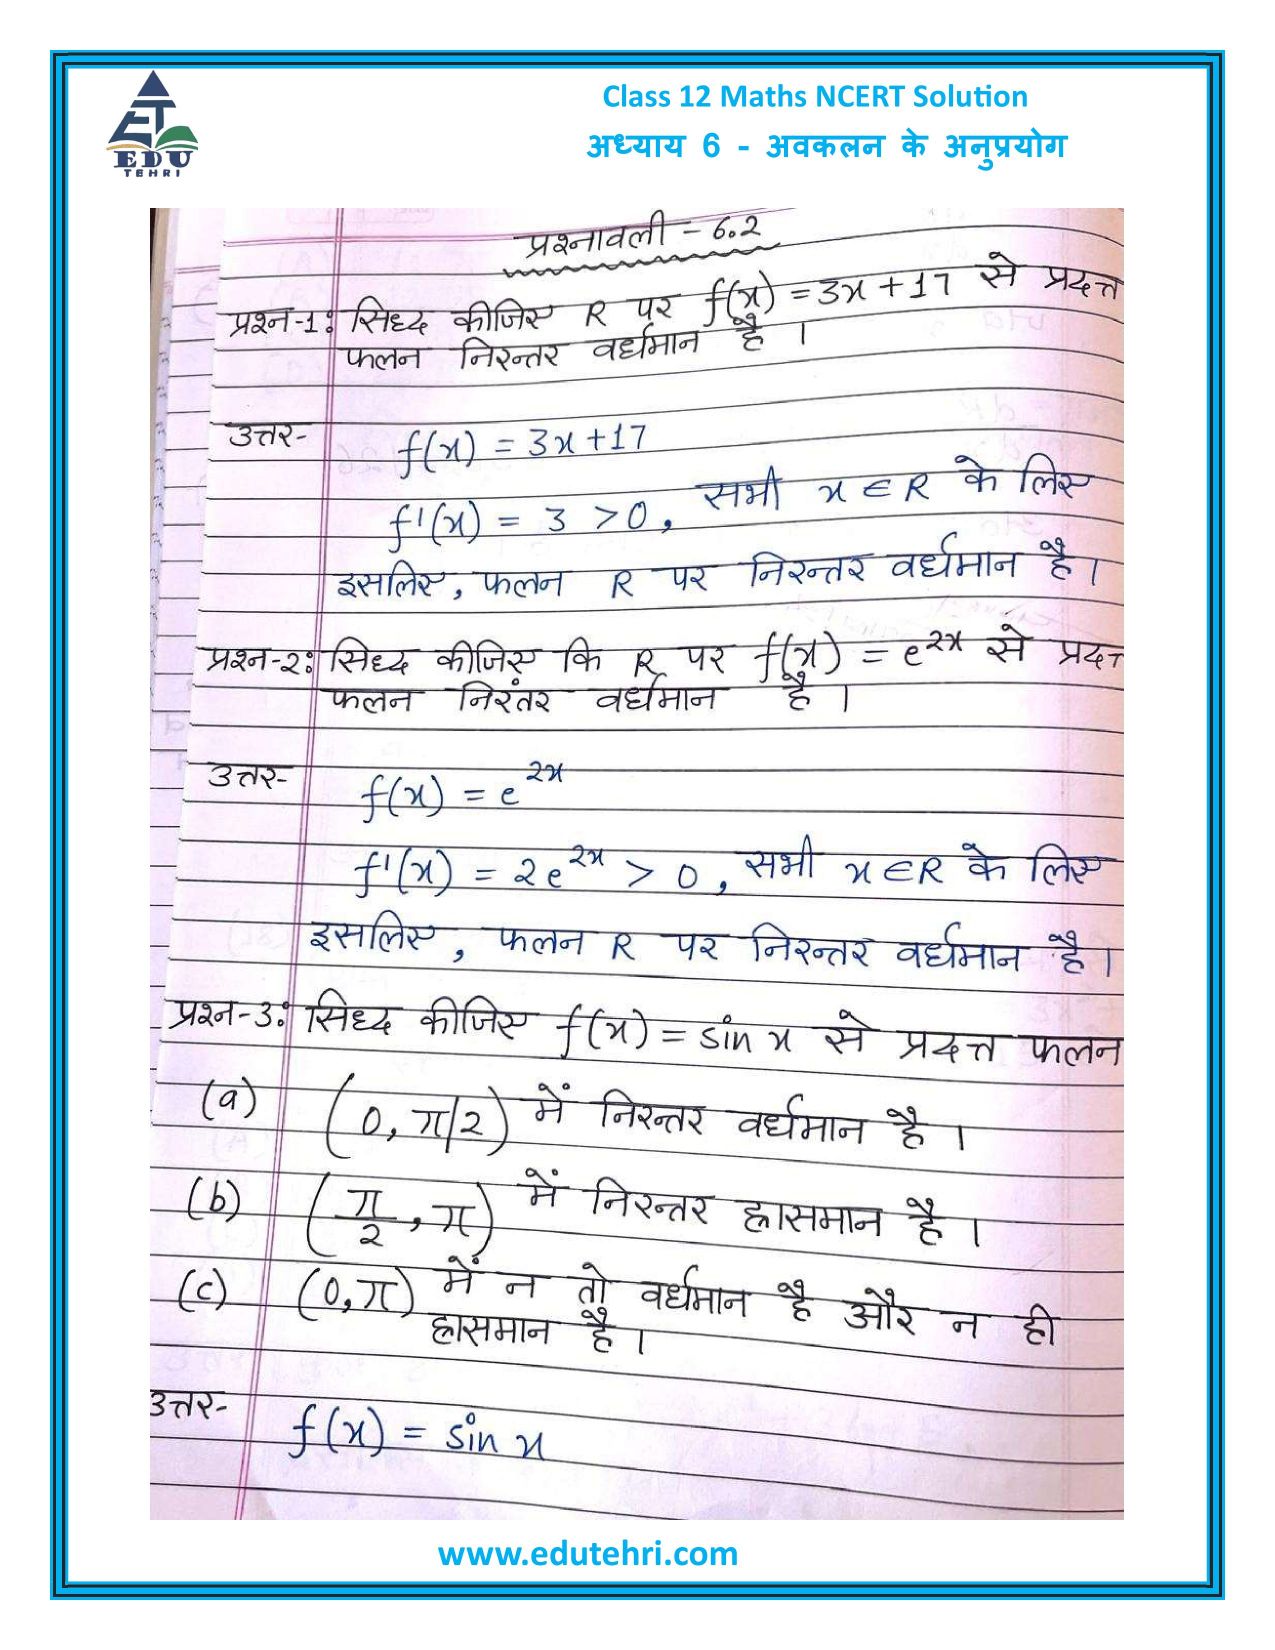 EDU
TEHRI
Class 12 Maths NCERT Solution
अध्याय 6 - अवकलन के अनुप्रयोग
प्रश्नावली - 6.2
प्रश्न-1: सिध्द कीजिए R पर f(x) = 3x + 17 से प्रदत्त
फलन निरन्तर वर्धमान है ।
उत्तर- f(x) = 3x + 17
f'(x) = 3 > 0, सभी x ∈ R के लिए
इसलिए, फलन R पर निरन्तर वर्धमान है।
प्रश्न-2: सिध्द कीजिए कि R पर f(x) = e^2x से प्रदत्त
फलन निरंतर वर्धमान है ।
उत्तर- f(x) = e^2x
f'(x) = 2e^2x > 0, सभी x ∈ R के लिए
इसलिए, फलन R पर निरन्तर वर्धमान है।
प्रश्न-3: सिध्द कीजिए f(x) = sin x से प्रदत्त फलन
(a) (0, π/2) में निरन्तर वर्धमान है ।
(b) (π/2, π) में निरन्तर ह्रासमान है ।
(c) (0, π) में न तो वर्धमान है और न ही
ह्रासमान है ।
उत्तर- f(x) = sin x
www.edutehri.com